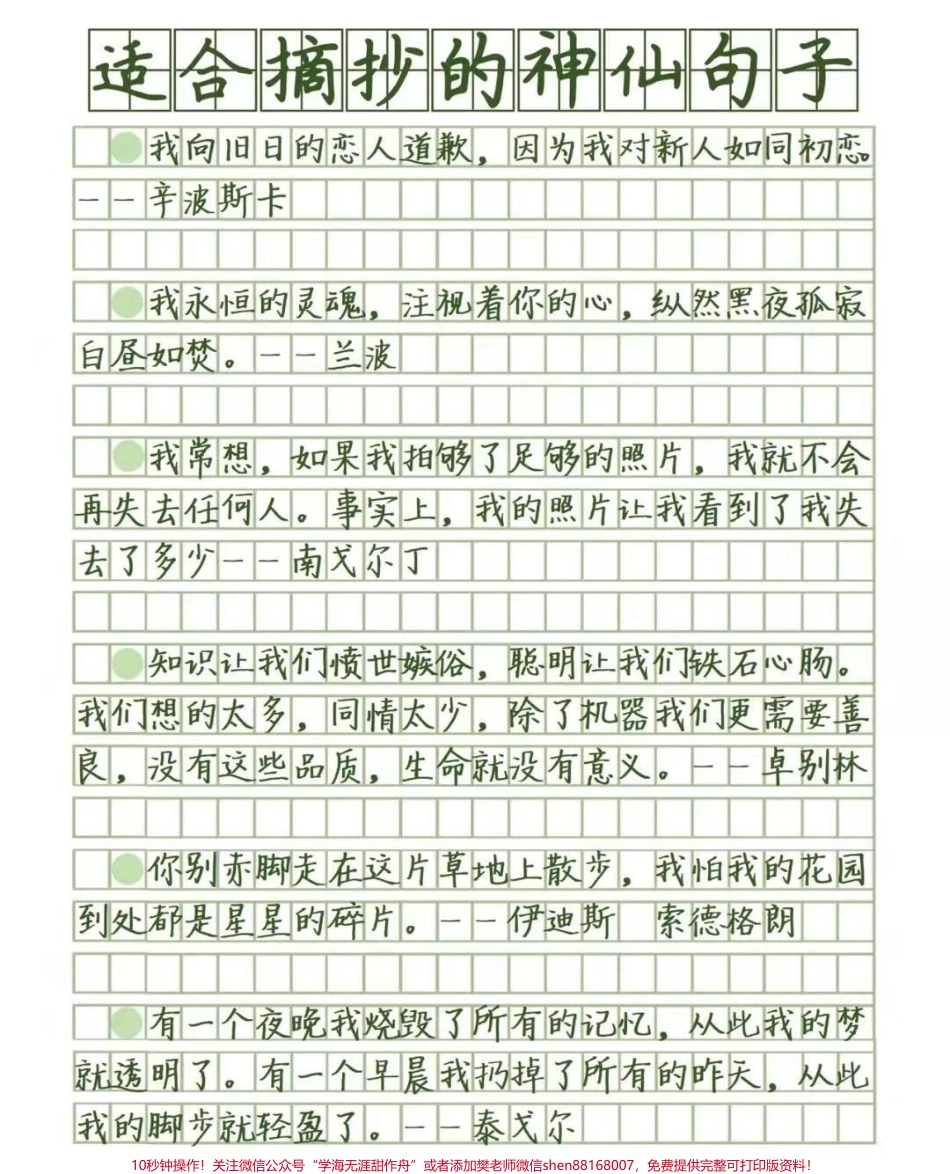 适合摘抄的神仙句子
我向旧日的恋人道歉，因为我对新人如同初恋。
——辛波斯卡
我永恒的灵魂，注视着你的心，纵然黑夜孤寂
白昼如焚。——兰波
我常想，如果我拍够了足够的照片，我就不会
再失去任何人。事实上，我的照片让我看到了我失
去了多少——南戈尔丁
知识让我们愤世嫉俗，聪明让我们铁石心肠。
我们想的太多，同情太少，除了机器我们更需要善
良，没有这些品质，生命就没有意义。——卓别林
你别赤脚走在这片草地上散步，我怕我的花园
到处都是星星的碎片。——伊迪斯 索德格朗
有一个夜晚我烧毁了所有的记忆，从此我的梦
就透明了。有一个早晨我扔掉了所有的昨天，从此
我的脚步就轻盈了。——泰戈尔
10秒钟操作！关注微信公众号“学海无涯甜作舟”或者添加樊老师微信shen88168007，免费提供完整可打印版资料！